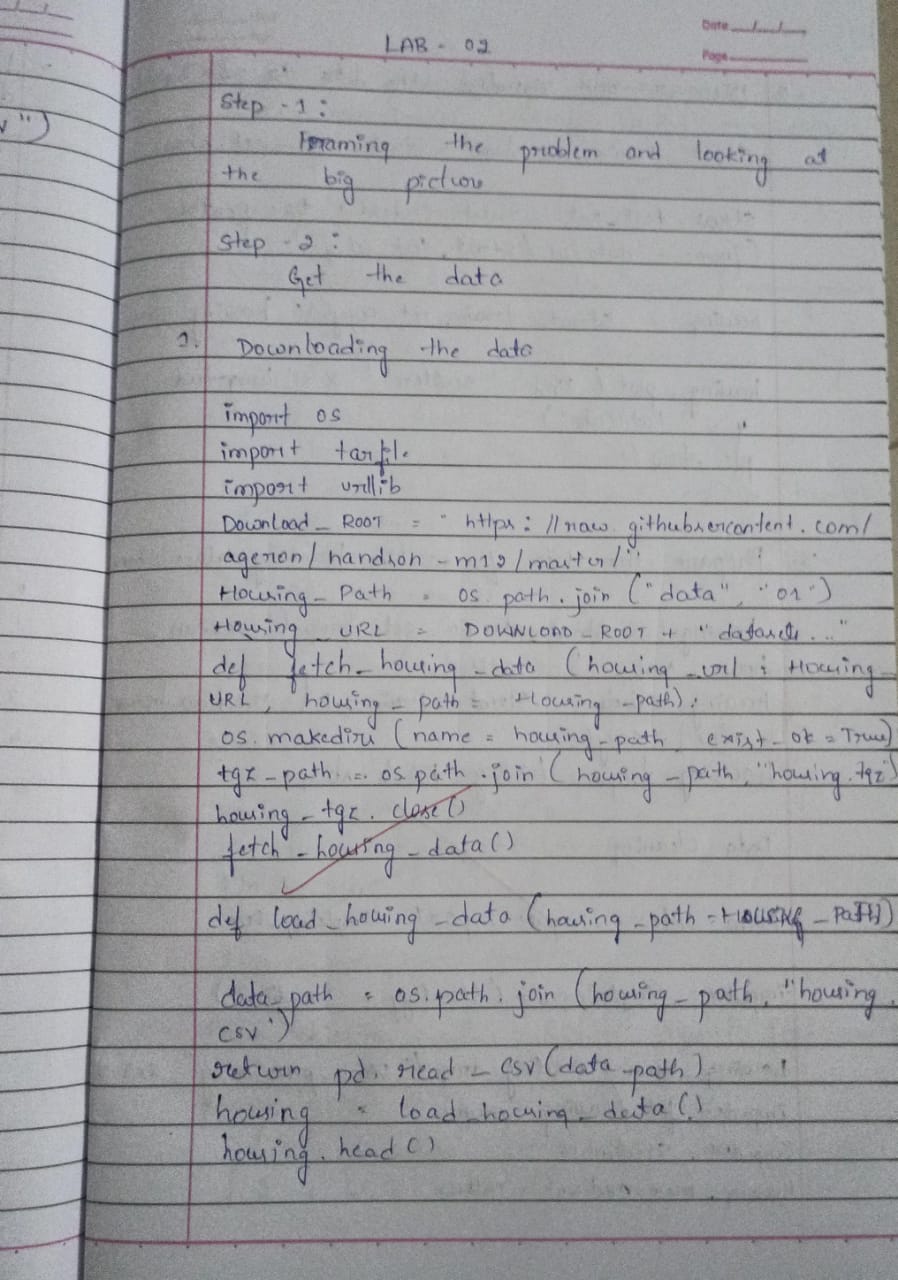 Date
LAB - 02
Page
Step - 1 :
")
Framing the problem and looking at
the big picture
Step - 2 :
Get the data
Downloading the data
import os
import tarfile
import urllib
Download_ ROOT = " https : // raw githubusercontent . com/
ageron / handson - ml2 / master / "
Housing_ Path = os. path . join ( "data" , "01" )
Housing URL = DOWNLOAD_ ROOT + " datasets ... "
def fetch_ housing _data ( housing _url = Housing_
URL , housing _ path = Housing _path) :
os. makedirs ( name = housing _ path exist _ ok = True)
tgz _ path = os. path . join ( housing _ path , "housing. tgz")
housing _ tgz . close ()
fetch _ housing _ data ()
def load _ housing _data ( housing _path = HOUSING _ PATH )
data_path = os. path . join ( housing _ path , "housing .
csv ")
return pd. read _ csv (data _path )
housing = load _housing _ data ()
housing . head ()